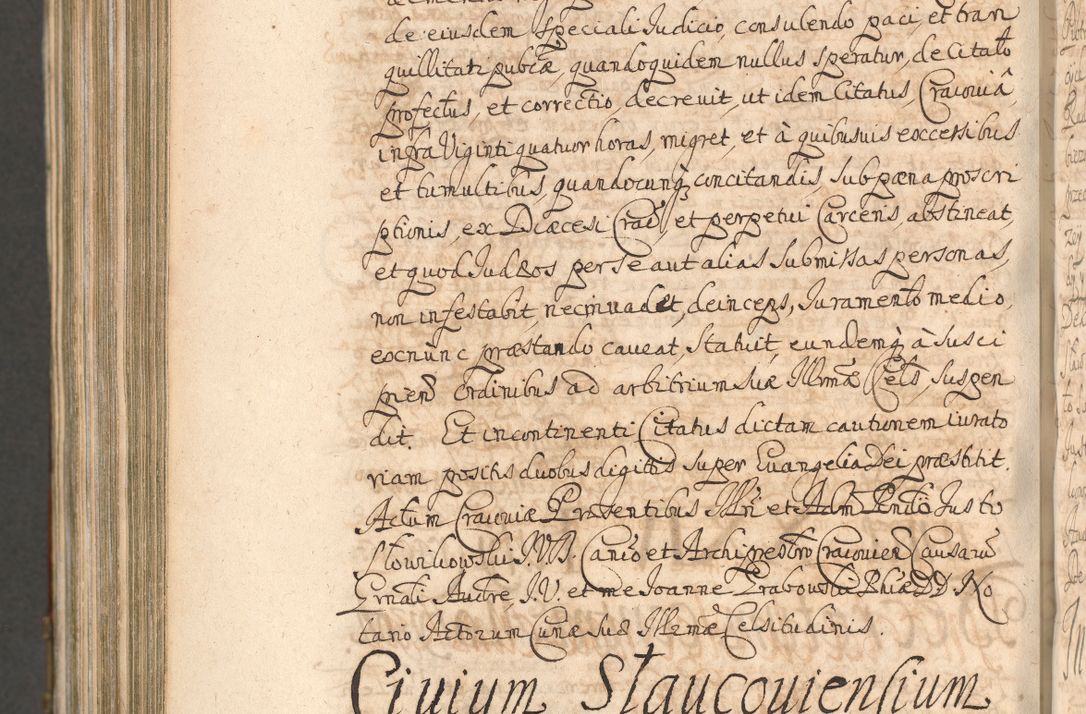 de eiusdem speciali Judicio, consulendo paci, et tran
quillitati publcæ, quandoquidem nullus speratur, de Citato
profectus, et correctio, decrevit, ut idem Citatus, Cracoviâ,
infra Viginti quatuor horas, migret, et à quibusuis excessibus
et tumultibus, quandocunq, concitandis, sub pæna proscri
ptionis, ex Diæcesi Crac, et perpetui Carceris, abstineat,
et quod Judæos per se aut alias submissas personas,
non infestabit, nec invadet, deinceps, Juramento medio,
exnunc præstando caveat, Statuit, eundemq à susci
pien Ordinibus ad arbitrium suæ Illmæ Cels suspen
dit. Et incontinenti Citatus dictam cautionem iurato
riam positis duobus digitis super Evangelia Dei præstitit.
Actum Cracoviæ Præsentibus Illri et Adm Rendo Justo
Słowikowski J.V.D. Canco et Archipresbro Cracovien Causarū
Grnali Auctre, J.V. et me Joanne Grabowski Phiæ DD. No
tario Actorum Curiæ suæ Illmæ Celsitudinis.
Civium Staucoviensium